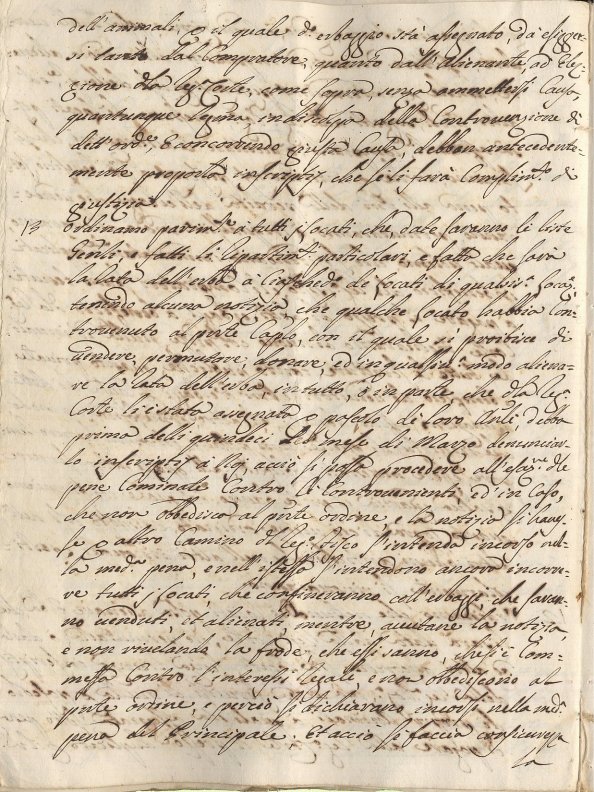 dell'animali, e il quale d.o erbaggio stà assegnato, da esigger-
si tanto dal Compratore, quanto dall'alienante, ad Elez-
zione d'la Reg.a Corte, come sopra, senza ammettersi Causa,
quantunque legitima in difesa della Controvenzione di
dett'ord.e, E concorrendo giusta Causa, debban antecedente-
mente proporla inscriptis, che se li farà Complim.to di
giustizia
13 Ordinamo parim.te à tutti i locati, che, date saranno le liste
Gen'li, e fatti li ripartim.ti particolari, e fatta che sarà
la lata dell'erba à Ciasched.o de locati di qualsis.a loca.ne
tenendo alcuna notizia che qualche locato habbia Con-
trovenuto al p'nte Cap'lo, con il quale si proibisce di
vendere, permutare, donare, ed in qualsisia modo aliena-
re la lata dell'erba, in tutto, ò in parte, che d'la Reg.a
Corte li è stata assegnata p pascolo di loro An'li, debba
prima delli quindeci del mese di Marzo denunciar-
lo inscriptis à Noi, acciò si possa procedere all'esaz.ne d'le
pene Cominate Contro li Controvenienti, ed in Caso,
che non obbedisca al p'nte ordine, e la notizia si haves-
se p altro Camino d'l Reg.o Fisco s'intenda incorso nel-
la med.a pena, e nell'istessa s'intendono ancora incorre-
re tutti i locati, che confineranno coll'erbaggi, che saran-
no venduti, et alienati, mentre, avutane la notizia,
e non rivelando la frode, che essi sanno, che si è Com-
messa Contro l'interessi Regale, e non obbediscono al
p'nte ordine, e perciò si dichiarano incorsi nella med.a
pena del Principale. Et acciò si faccia con sicurezza
la